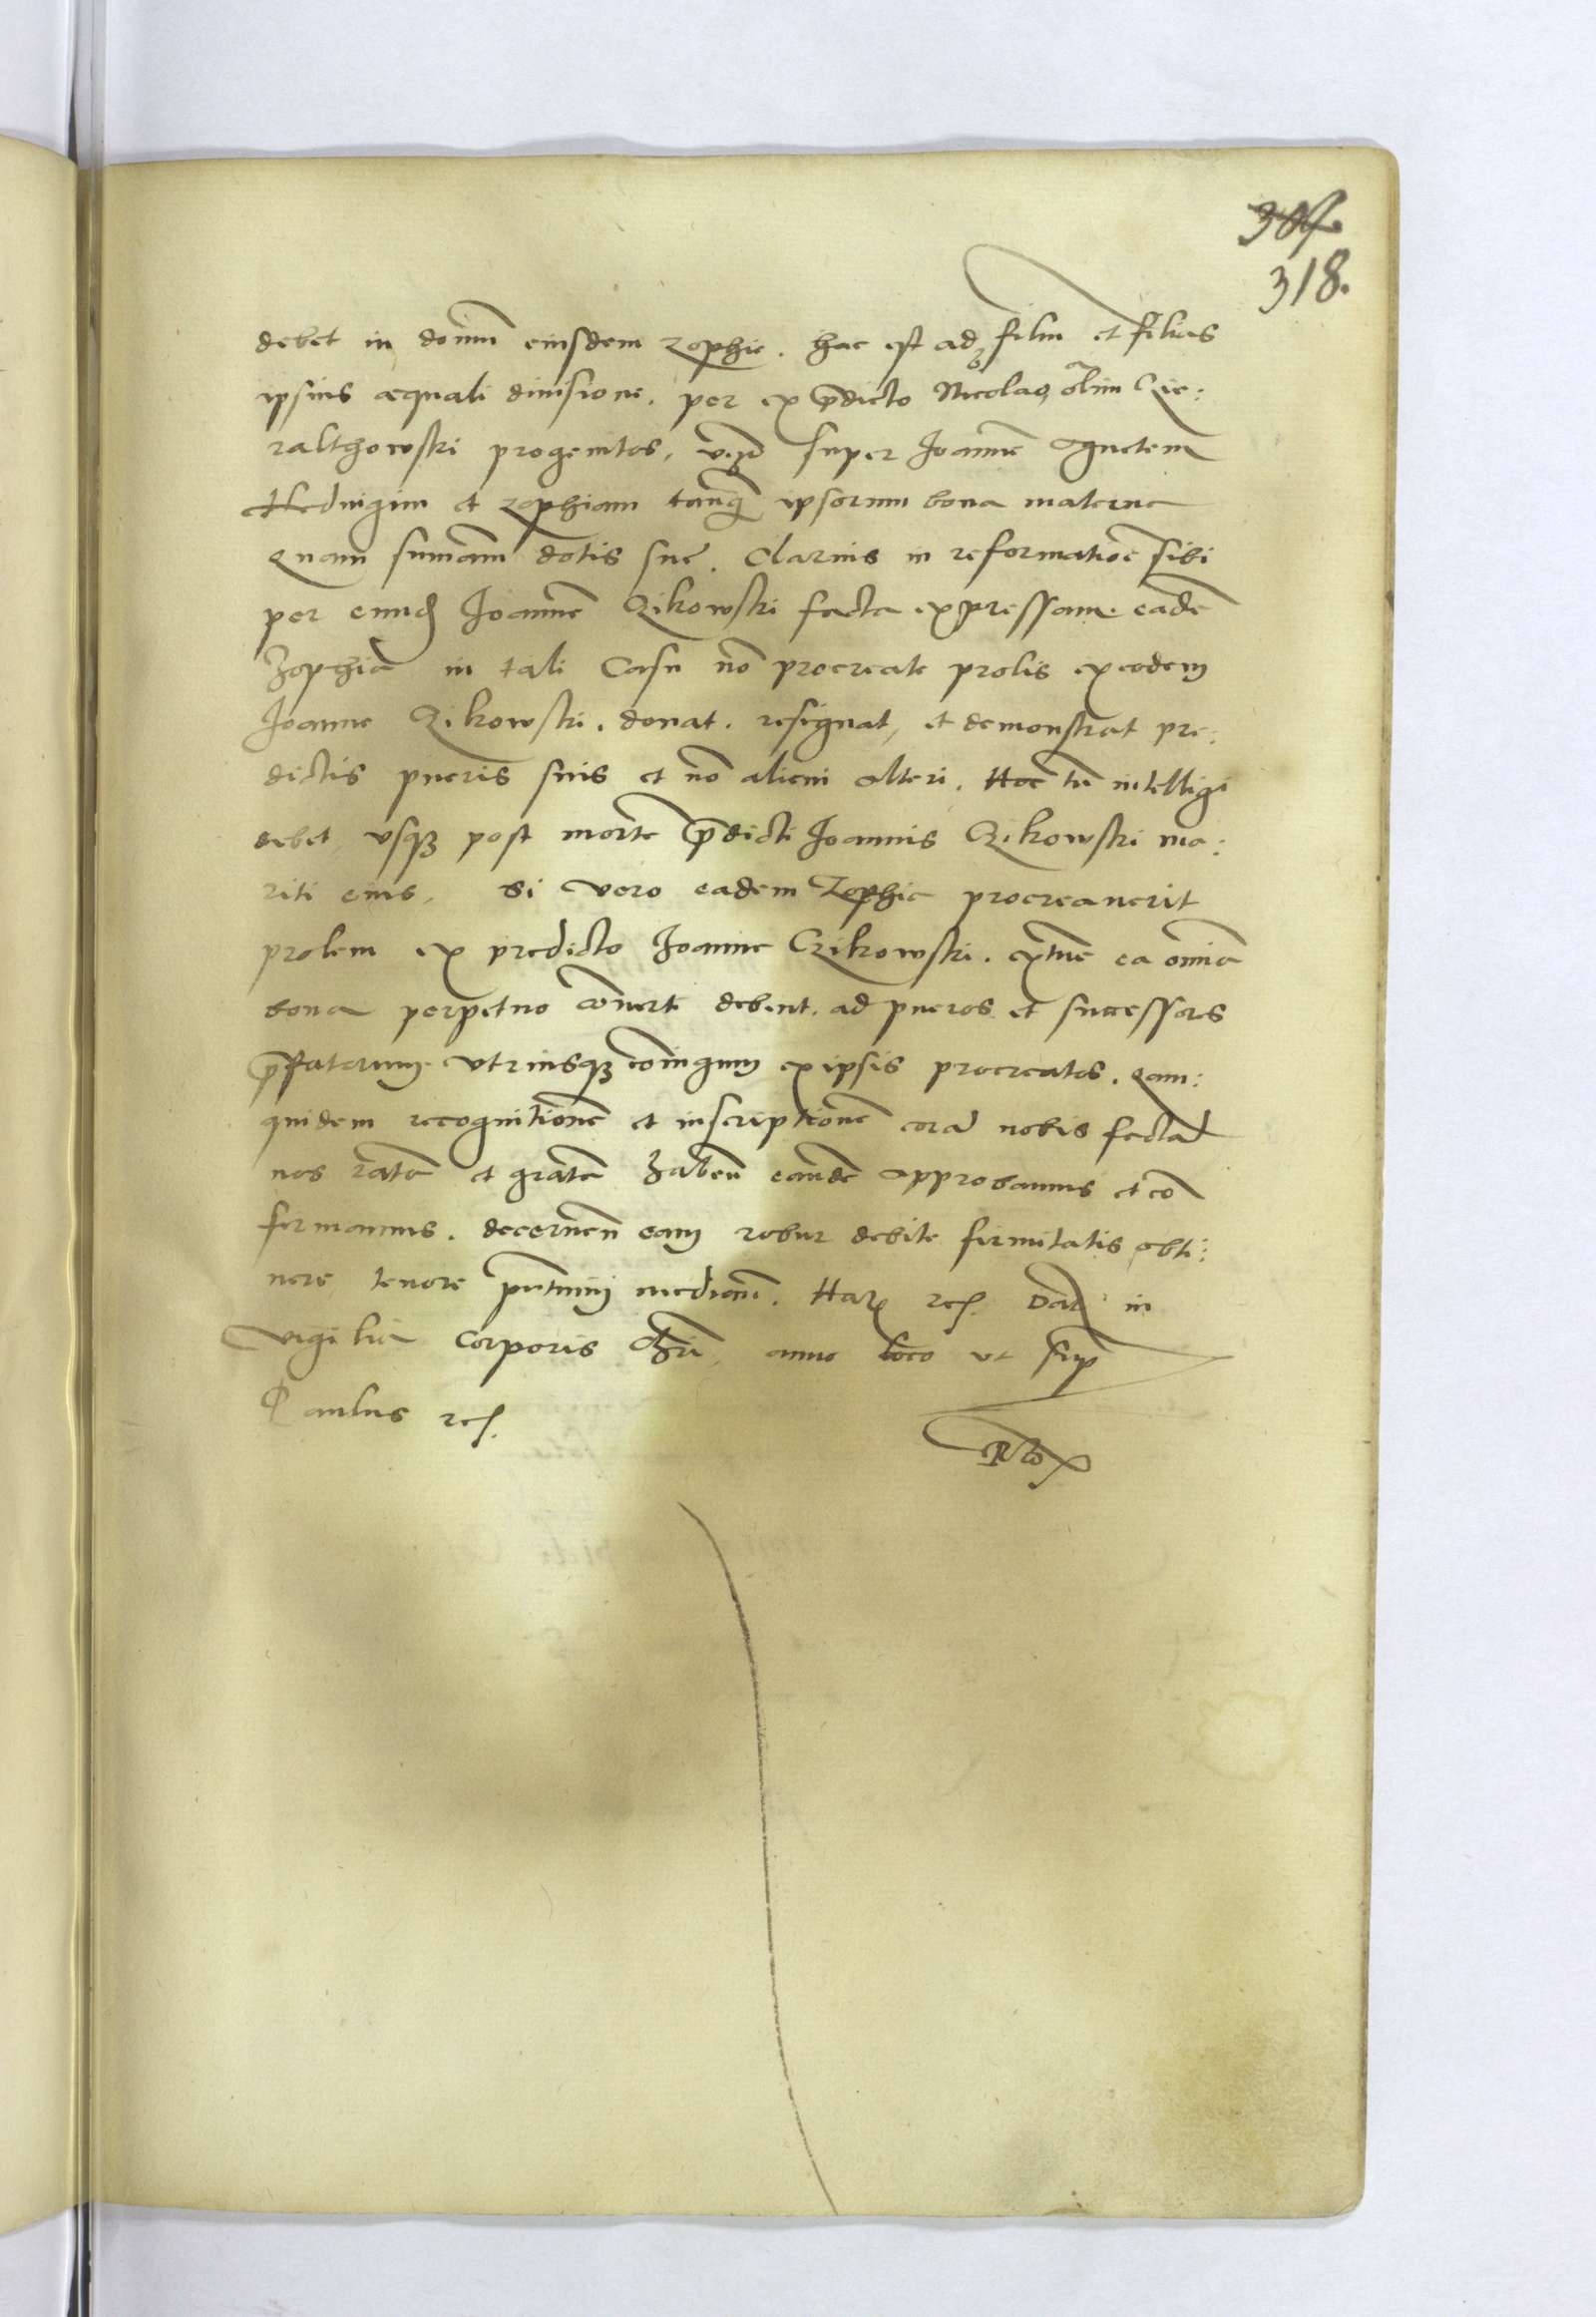 318.
debet in domũ eiusdem Zophie. hac est ad filiũ et filias
ipsius aequali diuisione. per ex p̃dicto Nicolao olim Cie:
ralthowski progenitos, super Joannẽ Agnetem
Heduigim et Zophiam tanq̃ ipsorum bona materna
Quam summam dotis suae. Clarius in reformatione sibi
per eund Joannẽ Czikowski facta expressam. eadẽ
Zophia in tali Casu nõ procreate prolis ex eodem
Joanne Czikowski. donat. resignat, et demonstrat pre:
dictis pueris suis et nõ alicui alteri. Hoc tñ intelligi
debet vsq3 post mortẽ p̃dicti Joannis Czikowski ma:
riti eius. Si vero eadem Zophia procreauerit
prolem ex predicto Joanne Czikowski. extunc ea omnia
bona perpetuo cõuerti debent. ad pueros et successores
p̃fatorum vtriusq3 coniugum ex ipsis procreatos. Quam:
quidem recognitionẽ et inscriptionẽ corã nobis factã
nos ratã et gratã habeñ eandẽ approbamus et cõ
firmamus. decerneñ eam robur debite firmitatis obti:
nere tenore p̃ntium mediante. Harũ rẽ. Dat in
vigilia Corporis Chri, anno loco vt sup̃
Paulus rẽ.